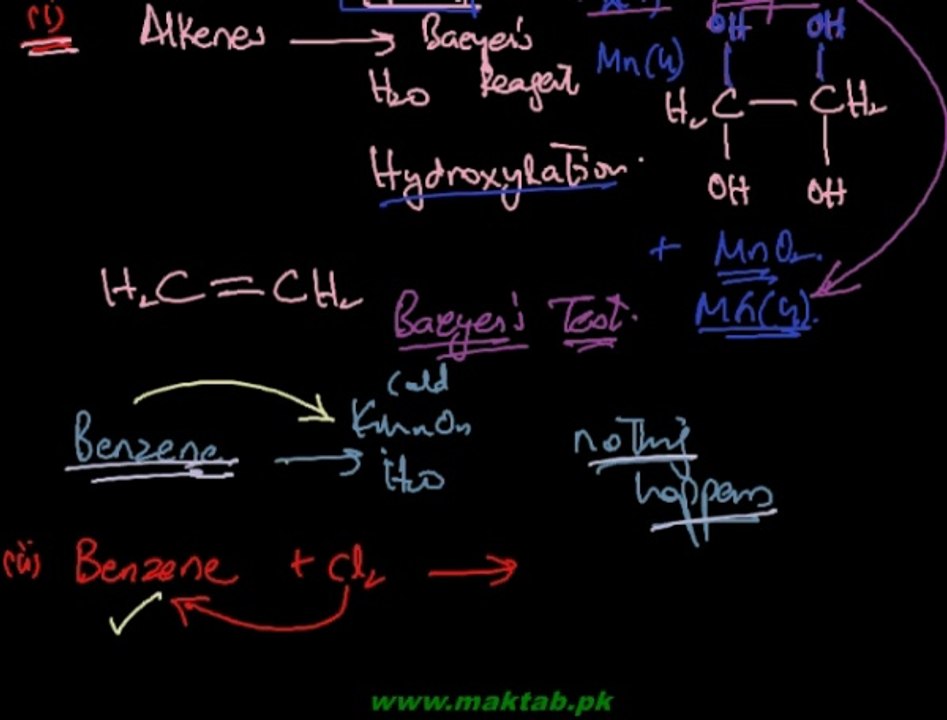 (i) Alkenes → Baeyer's
H₂O Reagent
Mn(4)
OH OH
H₂C — CH₂
OH OH
Hydroxylation.
+ MnO₂.
H₂C=CH₂
Baeyer's Test.
Mn(4).
Cold
Benzene → KMnO₄
H₂O
nothing
happens
(ii) Benzene + Cl₂ →
www.maktab.pk